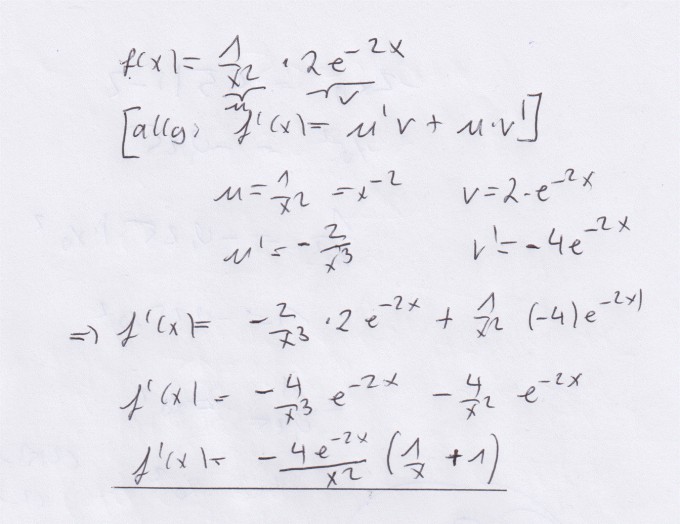 f(x) = 1/x² · 2e^(-2x)
u v
[allg: f'(x) = u'v + u·v']
u = 1/x² = x^(-2) v = 2·e^(-2x)
u' = - 2/x³ v' = - 4e^(-2x)
=> f'(x) = - 2/x³ · 2e^(-2x) + 1/x² (-4)e^(-2x)
f'(x) = - 4/x³ e^(-2x) - 4/x² e^(-2x)
f'(x) = - 4e^(-2x)/x² (1/x + 1)